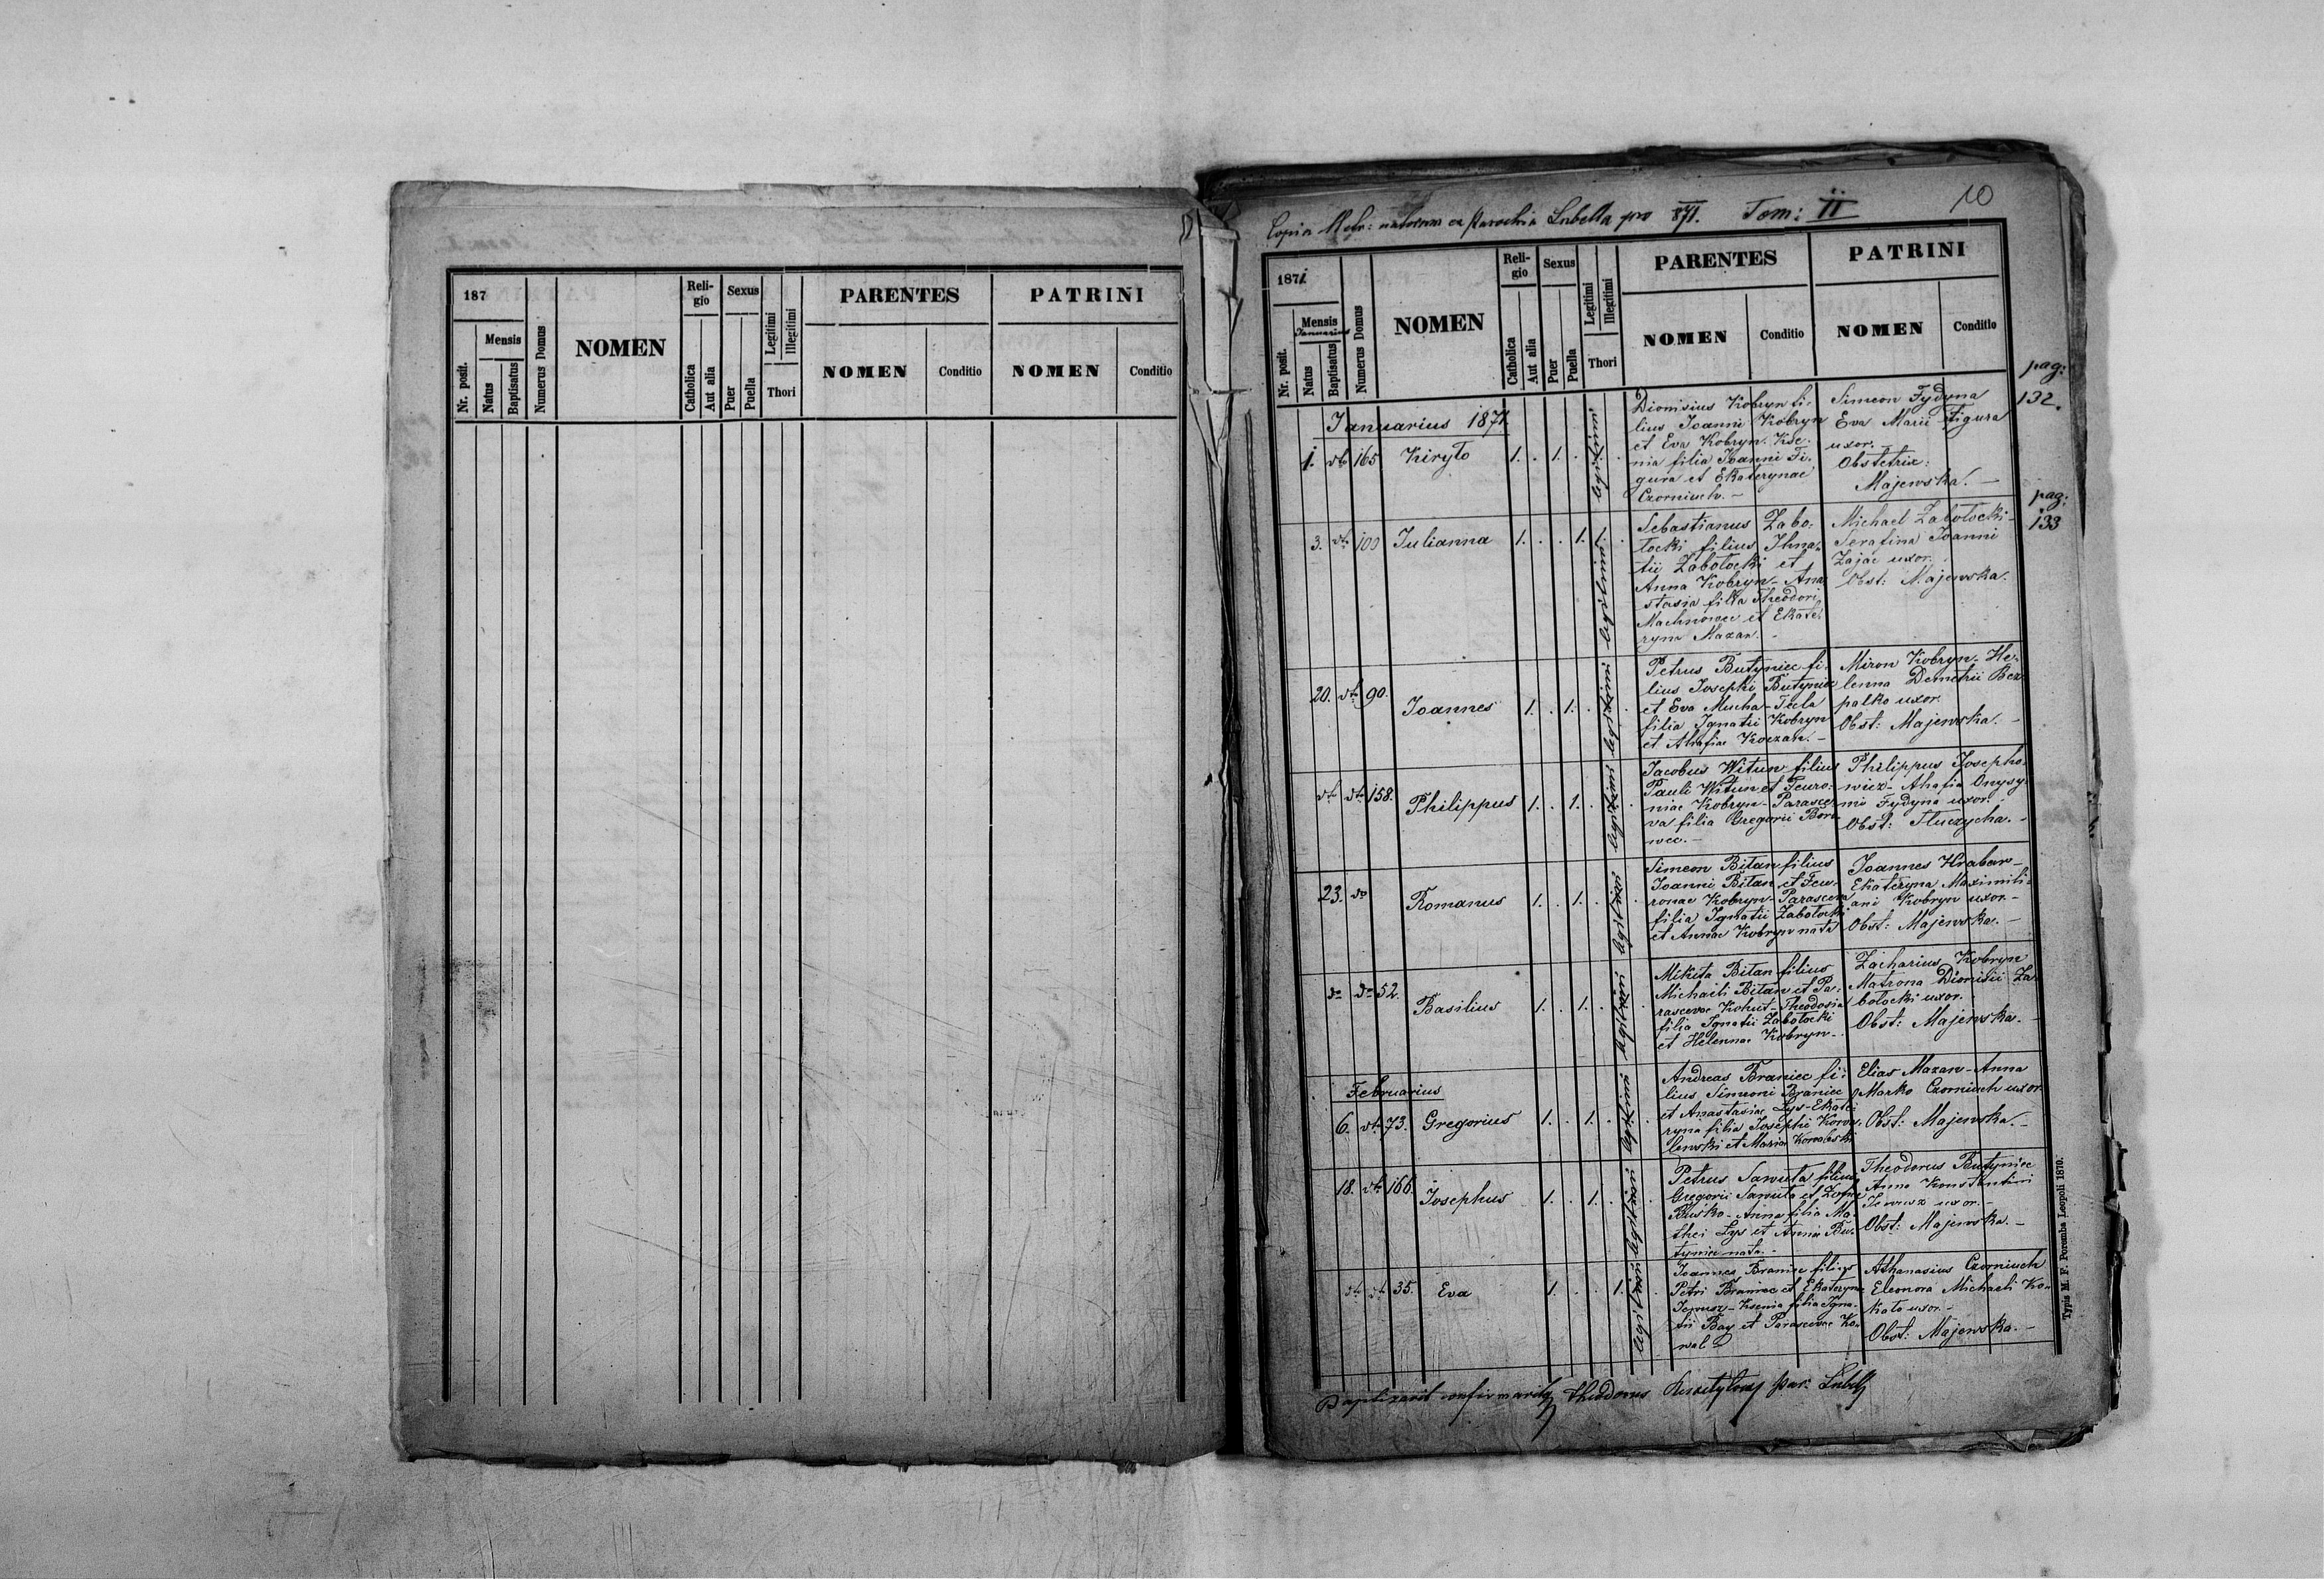 187
Nr. posit.
Mensis
Natus
Baptisatus
Numerus Domus
NOMEN
Reli-
gio
Catholica
Aut alia
Sexus
Puer
Puella
Legitimi
Illegitimi
Thori
PARENTES
NOMEN
Conditio
PATRINI
NOMEN
Conditio
10
Copia Metr: natorum ex Parochia Lubella pro 871. Tom: II
1871
Nr. posit.
Mensis
Januarius
Natus
Baptisatus
Numerus Domus
NOMEN
Reli-
gio
Catholica
Aut alia
Sexus
Puer
Puella
Legitimi
Illegitimi
Thori
PARENTES
NOMEN
Conditio
PATRINI
NOMEN
Conditio
pag:
132.
Januarius 1871
1. dto 165 Kiryło 1. . 1. . legitimi .
Dionisius Kobryn fi-
lius Joanni Kobryn
et Eva Kobryn. Kse-
nia filia Joanni Fi-
gura et Ekaterynae
Czorniuch. -
Simeon Fydyna
Eva Marii Figura
uxor.
Obstetrix:
Majewska. -
pag:
133
3. dto 100 Julianna 1. . . 1. 1. legitimi .
Sebastianus Zabo-
łocki filius Ihna-
tii Zabołocki et
Anna Kobryn - Ana-
stasia filia Theodori
Machnowec et Ekate-
ryna Mazan. -
Michael Zabołocki -
Serafina Joanni
Zając uxor.
Obst: Majewska.
20. dto 90. Joannes 1. . 1. . legitimi .
Petrus Butyniec fi-
lius Josephi Butyniec
et Eva Mucha - Tecla
filia Ignatii Kobryn
et Ahafiae Koczan. -
Miron Kobryn - He-
lenna Demetrii Bez
palko uxor.
Obst: Majewska. -
dto dto 158. Philippus 1. . 1. . legitimi .
Jacobus Witun filius
Pauli Witun et Feuro-
niae Kobryn - Parasce-
va filia Gregorii Boro-
wec. -
Philippus Josepho-
wicz - Ahafia Onysy-
mi Fydyna uxor.
Obst: Tłuczycha. -
23. do Romanus 1. . 1. . legitimi .
Simeon Bitan filius
Joanni Bitan et Feu-
ronae Kobryn - Parasceva
filia Ignatii Zabołocki
et Annae Kobryn nata
Joannes Hrabar -
Ekateryna Maximili-
ani Kobryn uxor. -
Obst: Majewska. -
do do 52. Basilius 1. . 1. . legitimi .
Mikita Bitan filius
Michaeli Bitan et Pa-
rascevae Kohut - Theodosia
filia Ignatii Zabołocki
et Helennae Kobryn -
Zacharius Kobryn
Matrona Dionisii Za-
bołocki uxor.
Obst: Majewska. -
Februarius
6. dto 73. Gregorius 1. . 1. . legitimi .
Andreas Braniec fi-
lius Simeoni Braniec
et Anastasiae Łys - Ekate-
ryna filia Josephi Kowa-
lewski et Maria
Elias Mazan - Anna
Marko Czorniuch uxor
Obst: Majewska. -
18. dto 166. Josephus 1. . 1. . legitimi .
Petrus Sawuła filius
Gregorii Sawuła et Zofiae
Pluska - Anna filia Ma-
thei Łys et Annae Bu-
tyniec nata. -
Theodorus Butyniec
Anna Konstantini
uxor. -
Obst: Majewska. -
dto dto 35. Eva 1. . . 1. legitimi .
Joannes Braniec filius
Petri Braniec et Ekateryna
- Ksenia filia Igna-
tii Bay et Parascevae Ko-
wal
Athanasius Czorniuch
Eleonora Michaeli Ko-
kato uxor. -
Obst: Majewska. -
Typis M. F. Poremba Leopoli 1870.
Baptizavit confirmavitq Theodorus par: Lubell